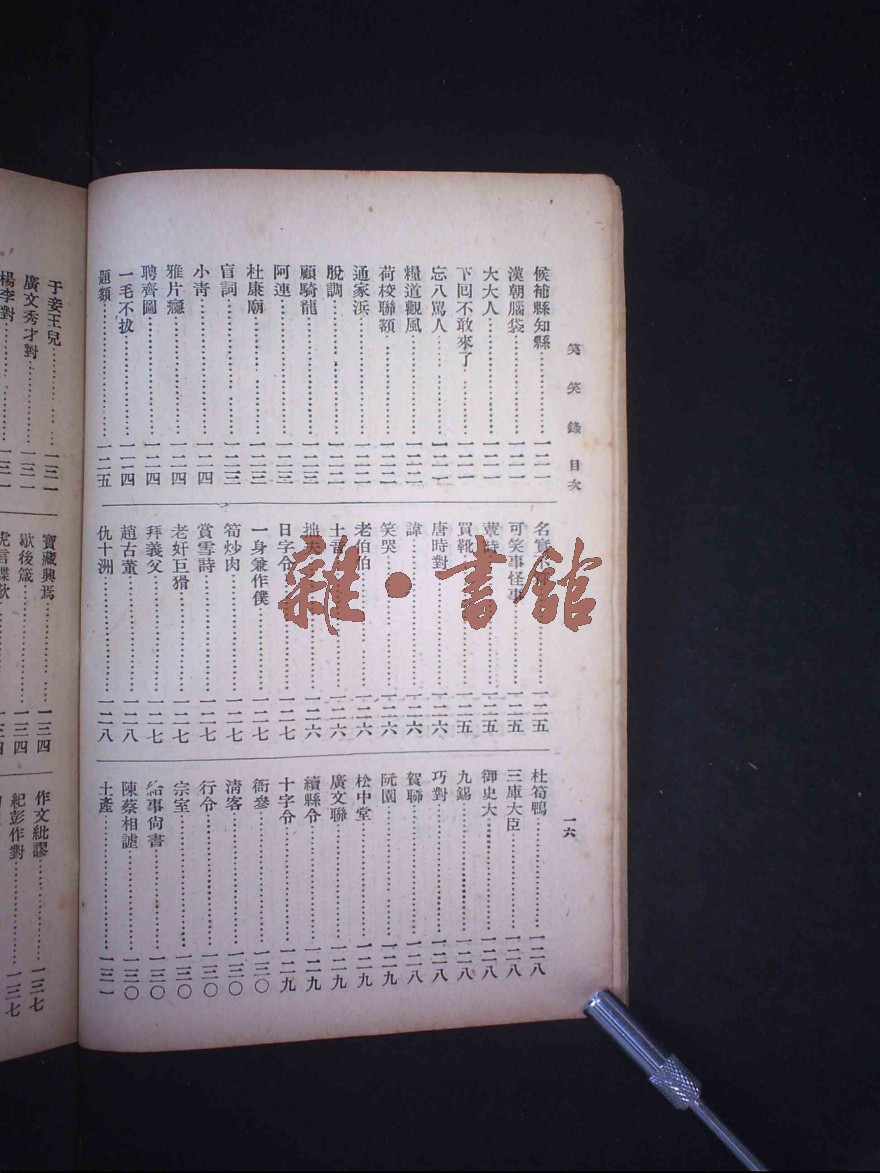 笑笑錄 目次
一六
候補縣知縣……一二一
漢朝腦袋……一二一
大大人……一二一
下回不敢來了……一二一
忘八罵人……一二一
糧道觀風……一二二
荷校聯額……一二二
通家浜……一二二
脫調……一二二
顧騎龍……一二三
阿連……一二三
杜康廟……一二三
盲詞……一二三
小青……一二四
雅片癮……一二四
聘齊圖……一二四
一毛不拔……一二四
題額……一二五
名實……一二五
可笑事怪事……一二五
詩……一二五
買靴……一二五
唐時對……一二六
諱……一二六
笑哭……一二六
老伯伯……一二六
土音……一二六
拙夫……一二六
日字令……一二七
一身兼作僕……一二七
筍炒肉……一二七
賞雪詩……一二七
老奸巨猾……一二七
拜義父……一二七
趙古董……一二八
仇十洲……一二八
杜筍鴨……一二八
三庫大臣……一二八
御史大……一二八
九錫……一二八
巧對……一二八
賀聯……一二八
阮圓……一二九
松中堂……一二九
廣文聯……一二九
續縣令……一二九
十字令……一二九
衙參……一三〇
清客……一三〇
行令……一三〇
宗室……一三〇
給事尙書……一三〇
陳蔡相謔……一三〇
土產……一三一
于妾王兒……一三一
廣文秀才對……一三一
楊李對……一三一
寶藏興焉……一三四
歇後箴……一三四
作文紕謬……一三七
紀彭作對……一三七
雜·書館